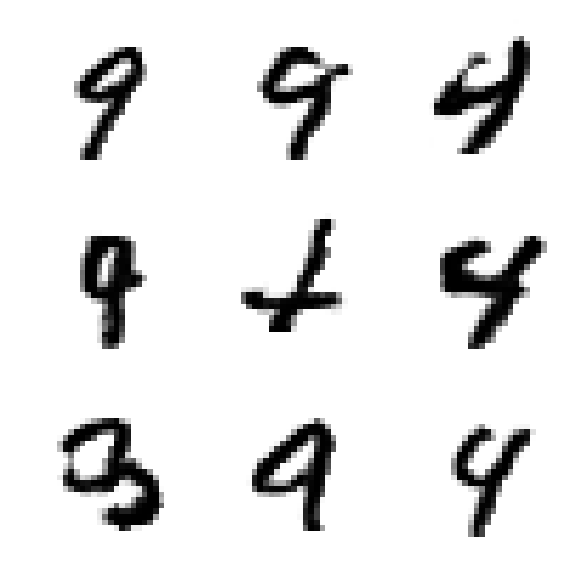 9 9 4
9 4 4
9 4